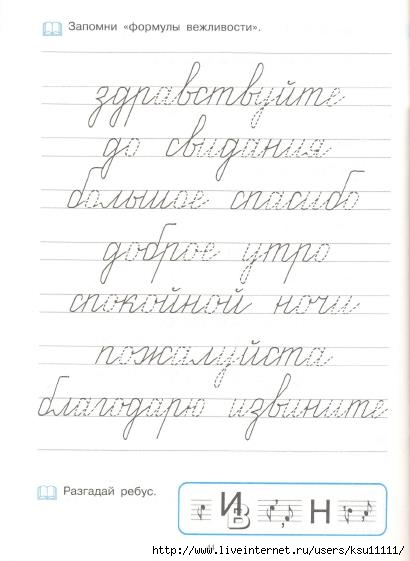 Запомни «формулы вежливости».
здравствуйте
до свидания
большое спасибо
доброе утро
спокойной ночи
пожалуйста
благодарю извините
Разгадай ребус.
И В Н
http://www.liveinternet.ru/users/ksu11111/